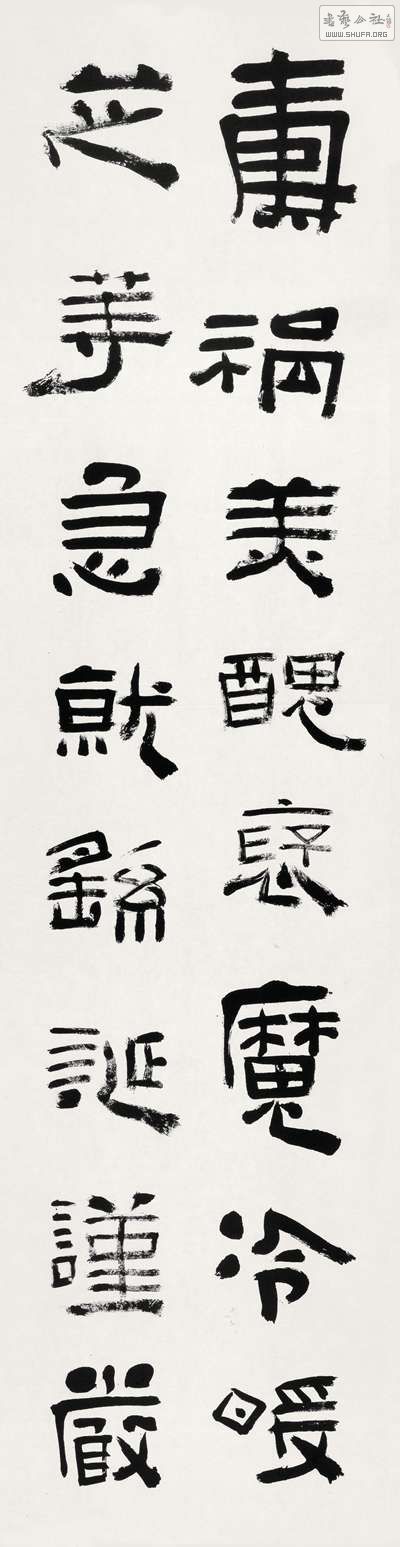 書藝公社
WWW.SHUFA.ORG
禍美醜魔冷暖
芝草急就繇誕謹嚴